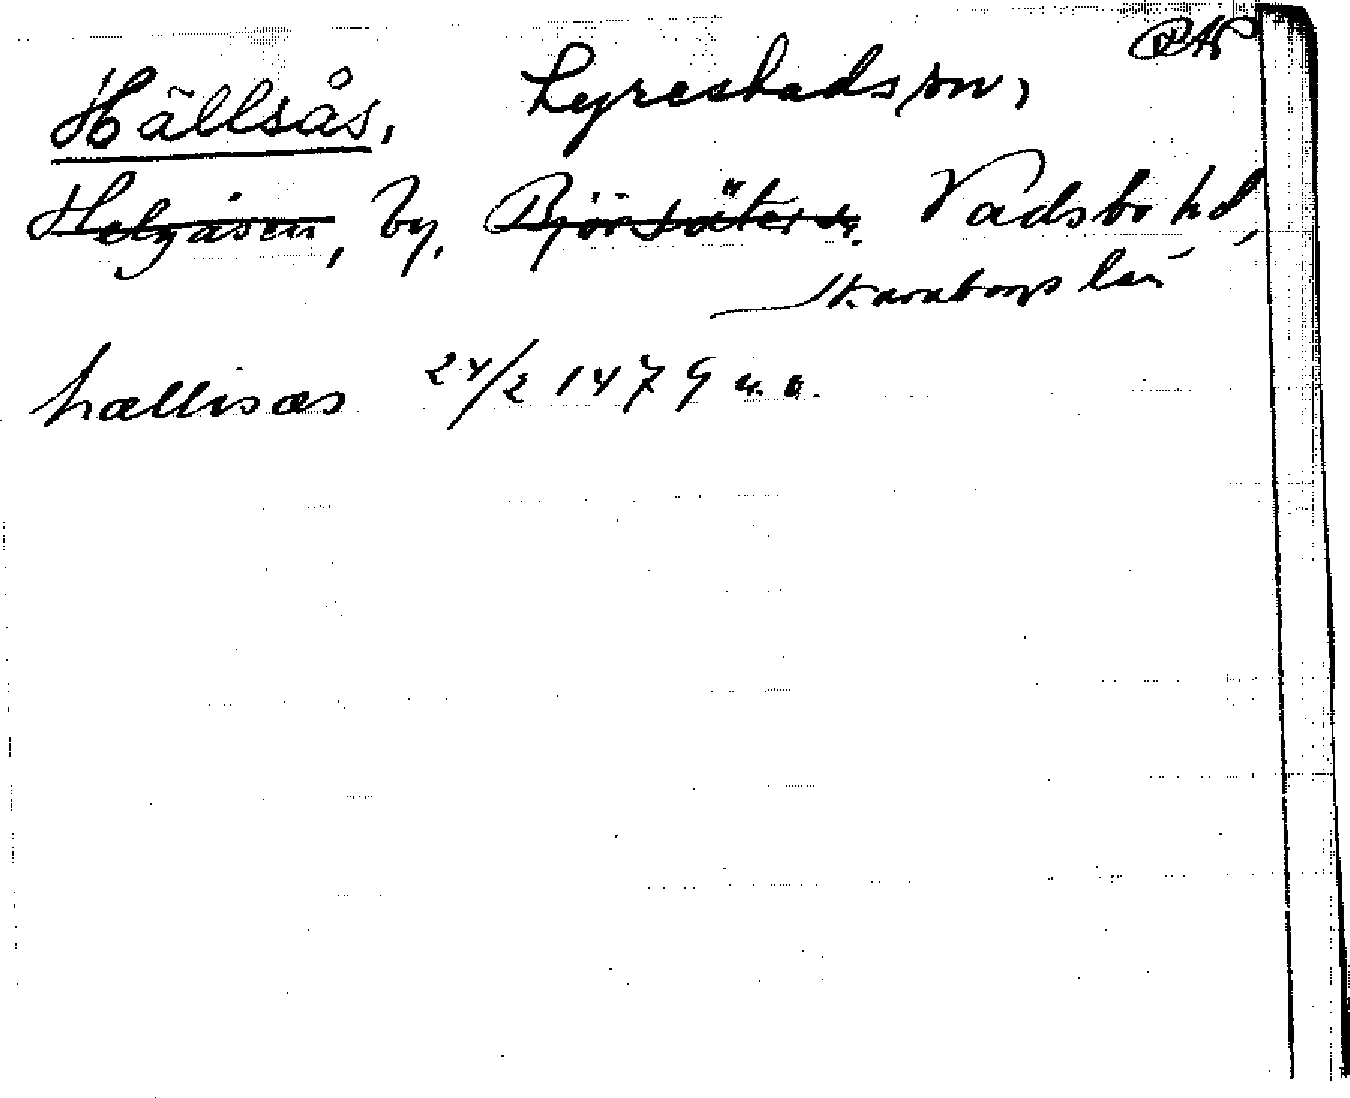 Hällsås, Lyrestads sn,
Helgåsen, by, Björsäters sn. Vadsbo hd,
Skaraborgs län
hællisas 24/2 1479 u. o.